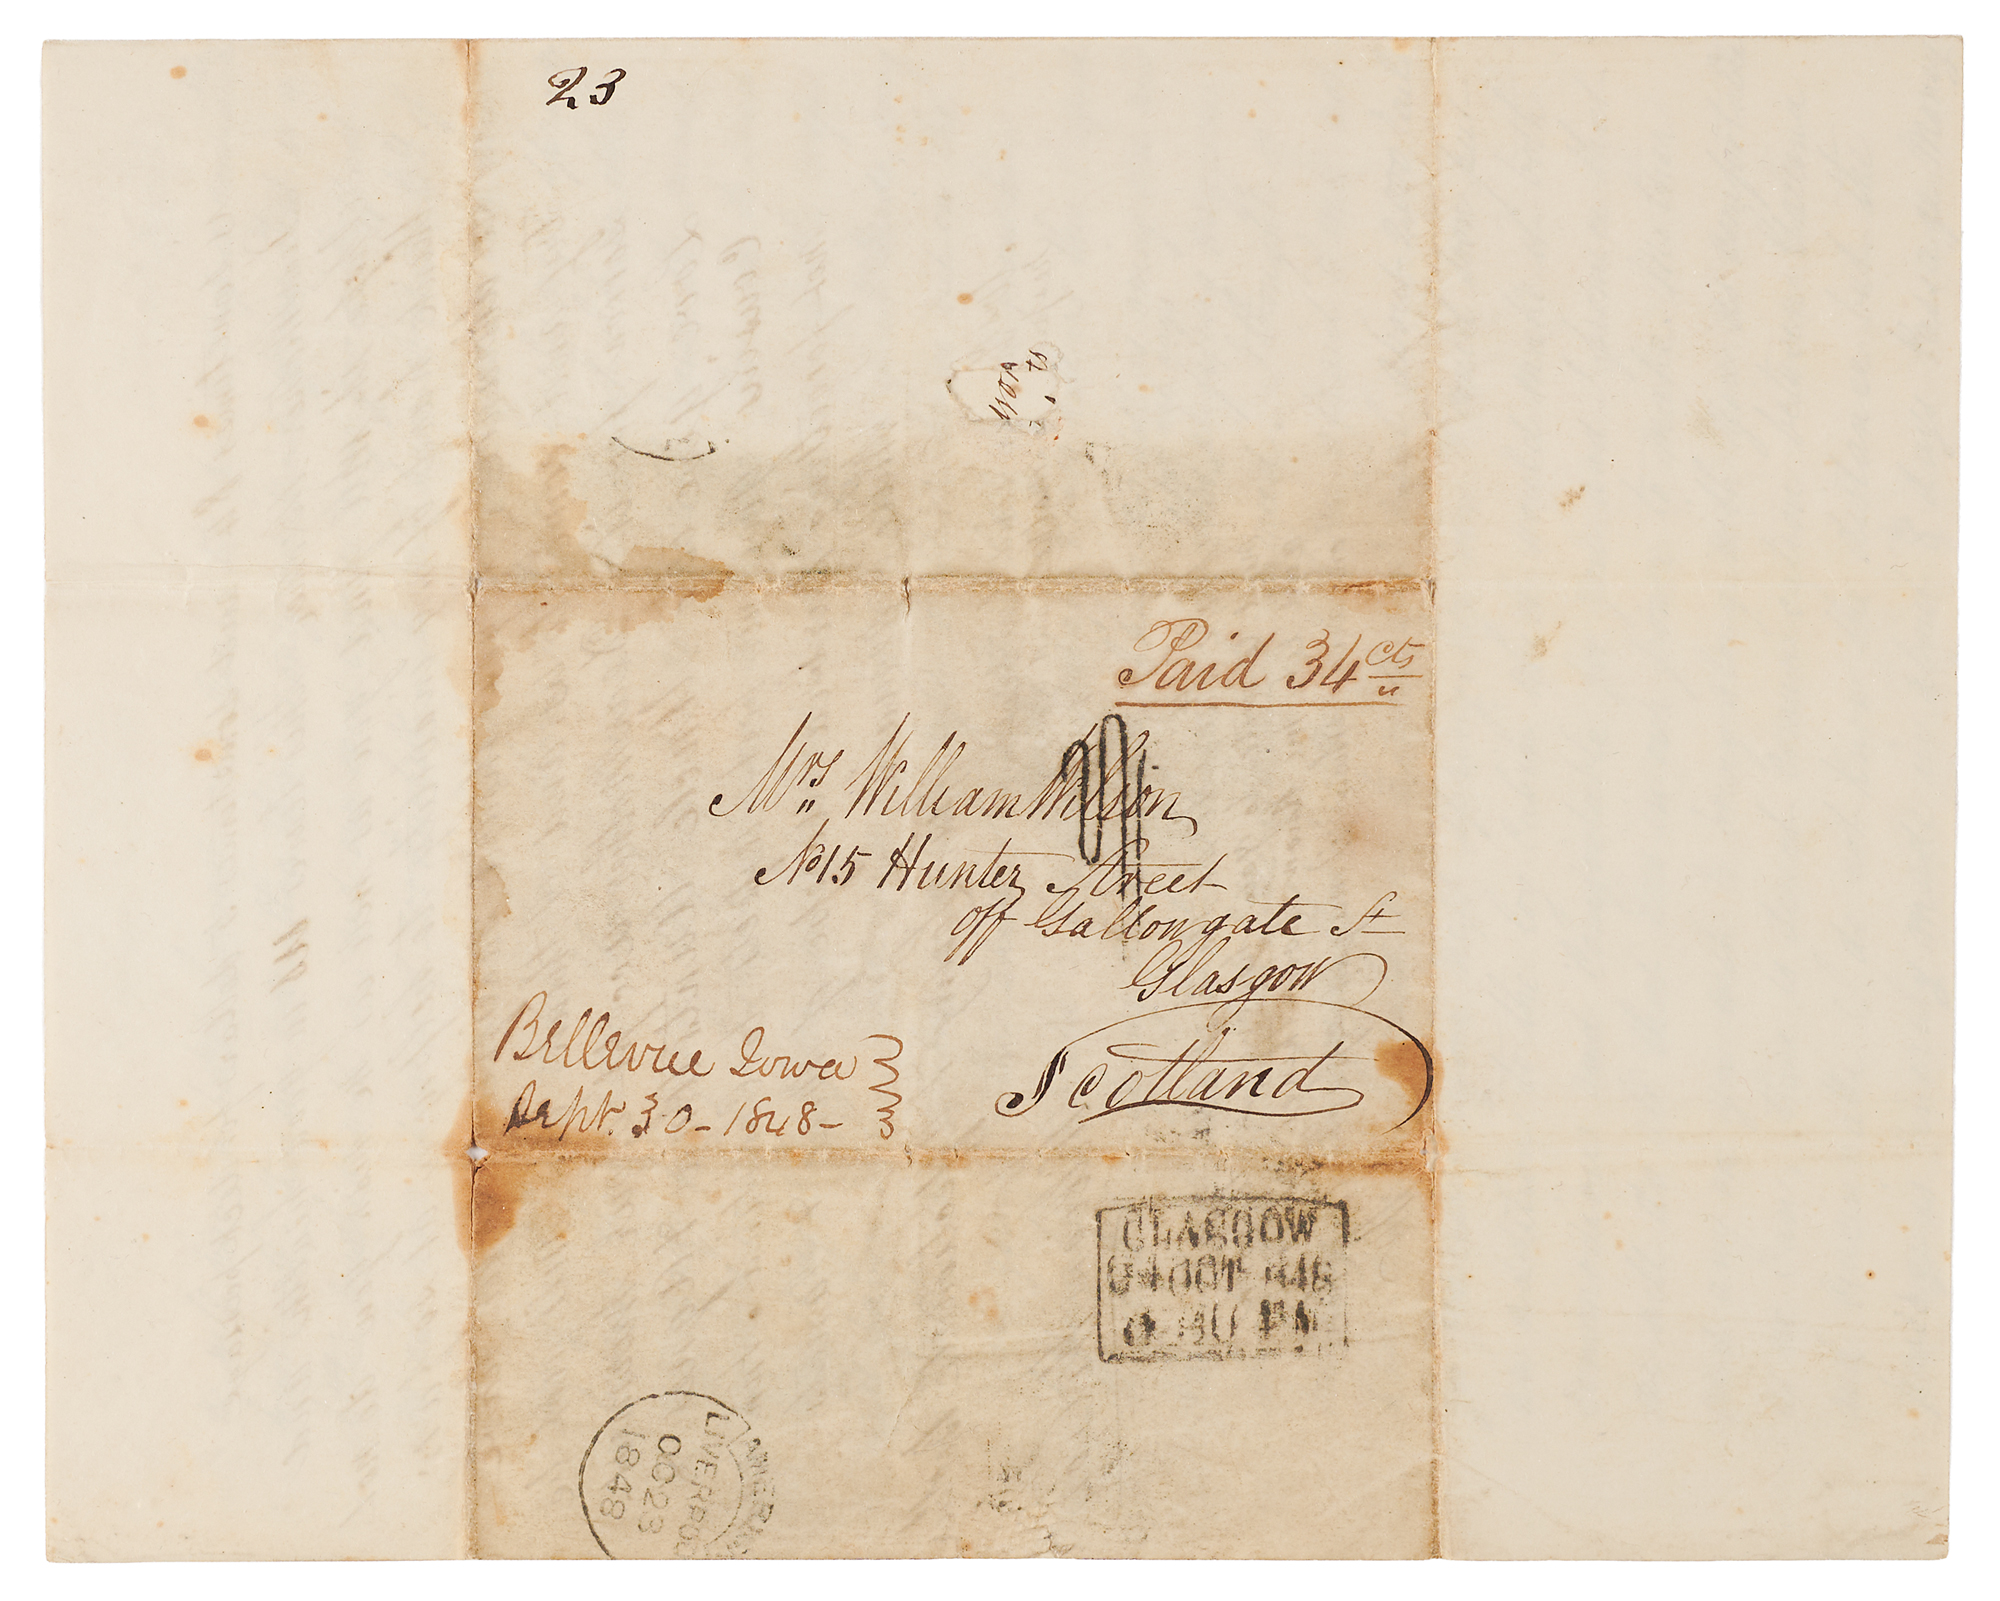 23
Paid 34 cts
Mrs. William Wilson
No 15 Hunter Street
off Gallowgate St
Glasgow
Scotland
Bellevue Iowa
Sept. 30 - 1848 -
GLASGOW
24 OCT 1848
PM
AMERICA
LIVERPOOL
OC 23
1848